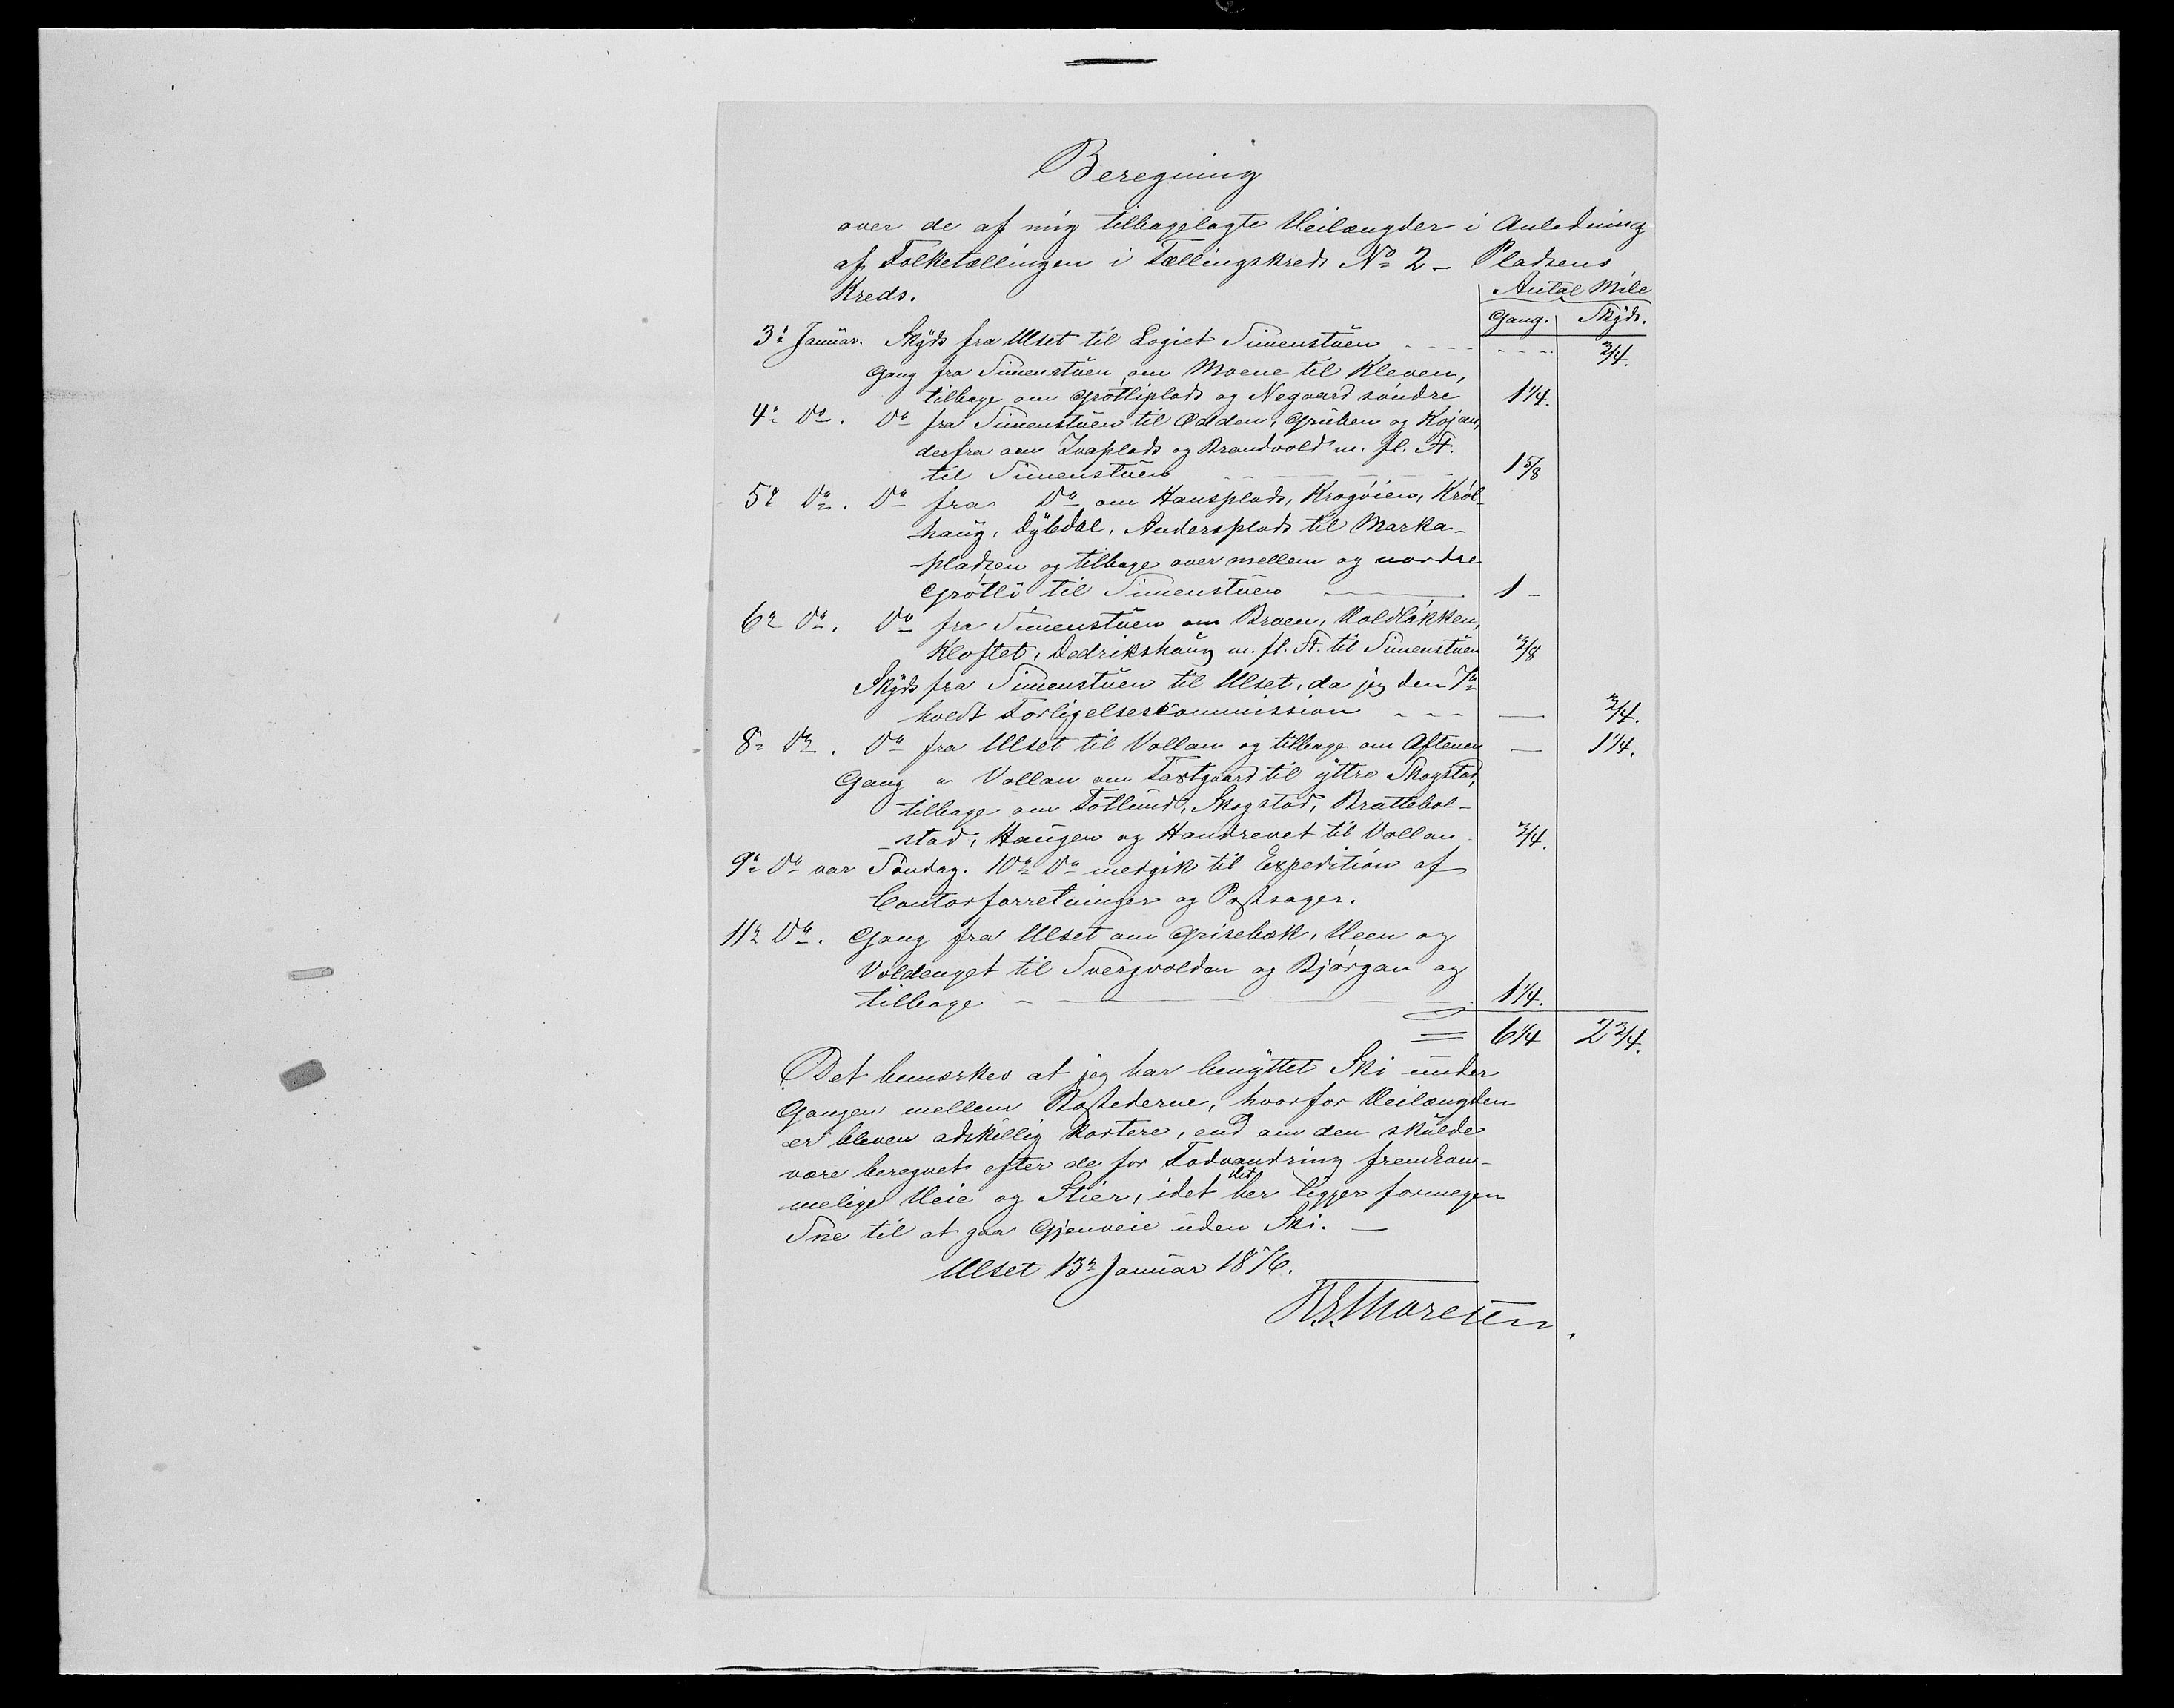 Beregning
over de af mig tilbagelagte Veilængder i Anledning
af Folketællingen i Tællingskreds No 2 – Pladsens
Kreds.
Antal Mile
Gang. Skyds.
3die Januar. Skyds fra Ulset til Logiet Simenstuen - - - - - - - - 3/4.
Gang fra Simenstuen om Moene til Kleven,
tilbage om Grøtliplads og Negaard søndre 1 1/4.
4de Do. Do fra Simenstuen til Odden, Gruben og Kojan,
derfra om Ivaplads og Brandvold m. fl. St.
til Simenstuen 1 5/8
5te Do. Do fra Do om Hansplads, Krogøien, Krøl-
haug, Dybdal, Andersplads til Marka-
pladsen og tilbage over mellem og nordre
Grøtli til Simenstuen 1 –
6te Do. Do fra Simenstuen om Broen, Voldløkken,
Kloftet, Dedrikshaug m. fl. St. til Simenstuen 3/8
Skyds fra Simenstuen til Ulset, da jeg den 7de
holdt Forligelsescommission - - - — 3/4.
8de Do. Do fra Ulset til Vollan og tilbage om Aftenen — 1 1/4.
Gang " Vollan om Taxtgaard til yttre Skogstad,
tilbage om Fotlund, Skogstad, Brattebol-
stad, Haugen og Handrevet til Vollan 3/4.
9de Do var Søndag. 10de Do medgik til Expedition af
Contorforretninger og Postsager.
11te Do. Gang fra Ulset om Grisebæk, Veen og
Voldenget til Svergvolden og Bjørgan og
tilbage 1 1/4.
= 6 1/4 2 3/4.
Det bemærkes at jeg har benyttet Ski under
Gangen mellem Bostederne, hvorfor Veilængden
er bleven adskillig kortere, end om den skulde
være beregnet efter de for Fodvandring fremkom-
melige Veie og Stier, idet det her ligger formegen
Sne til at gaa Gjenveie uden Ski. —
Ulset 13de Januar 1876.